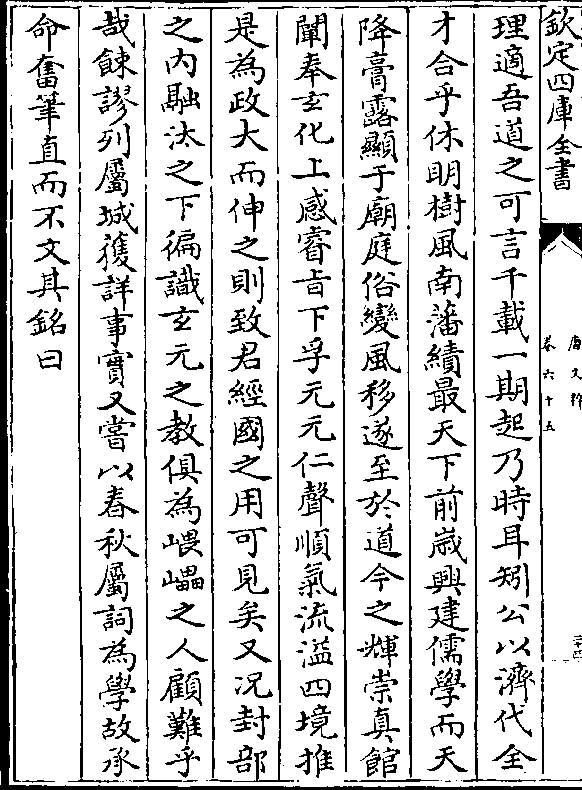 欽定四庫全書
唐文粹
卷六十五
理適吾道之可言千載一期起乃時耳矧公以濟代全
才合乎休明樹風南藩績最天下前嵗興建儒學而天
降膏露顯于廟庭俗變風移遂至於道今之輝崇真館
闡奉玄化上感睿旨下孚元元仁聲順氣流溢四境推
是為政大而伸之則致君經國之用可見矣又况封部
之内融汰之下徧識玄元之教俱為㟪㠥之人顧難乎
哉餗謬列屬城獲詳事實又嘗以春秋屬詞為學故承
命奮筆直而不文其銘曰